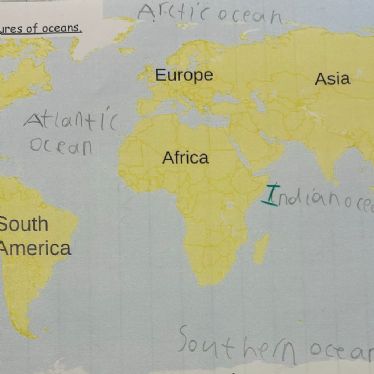 Arctic ocean
ures of oceans.
Europe
Asia
Atlantic
ocean
Africa
Indian ocea
South
America
Southern ocean